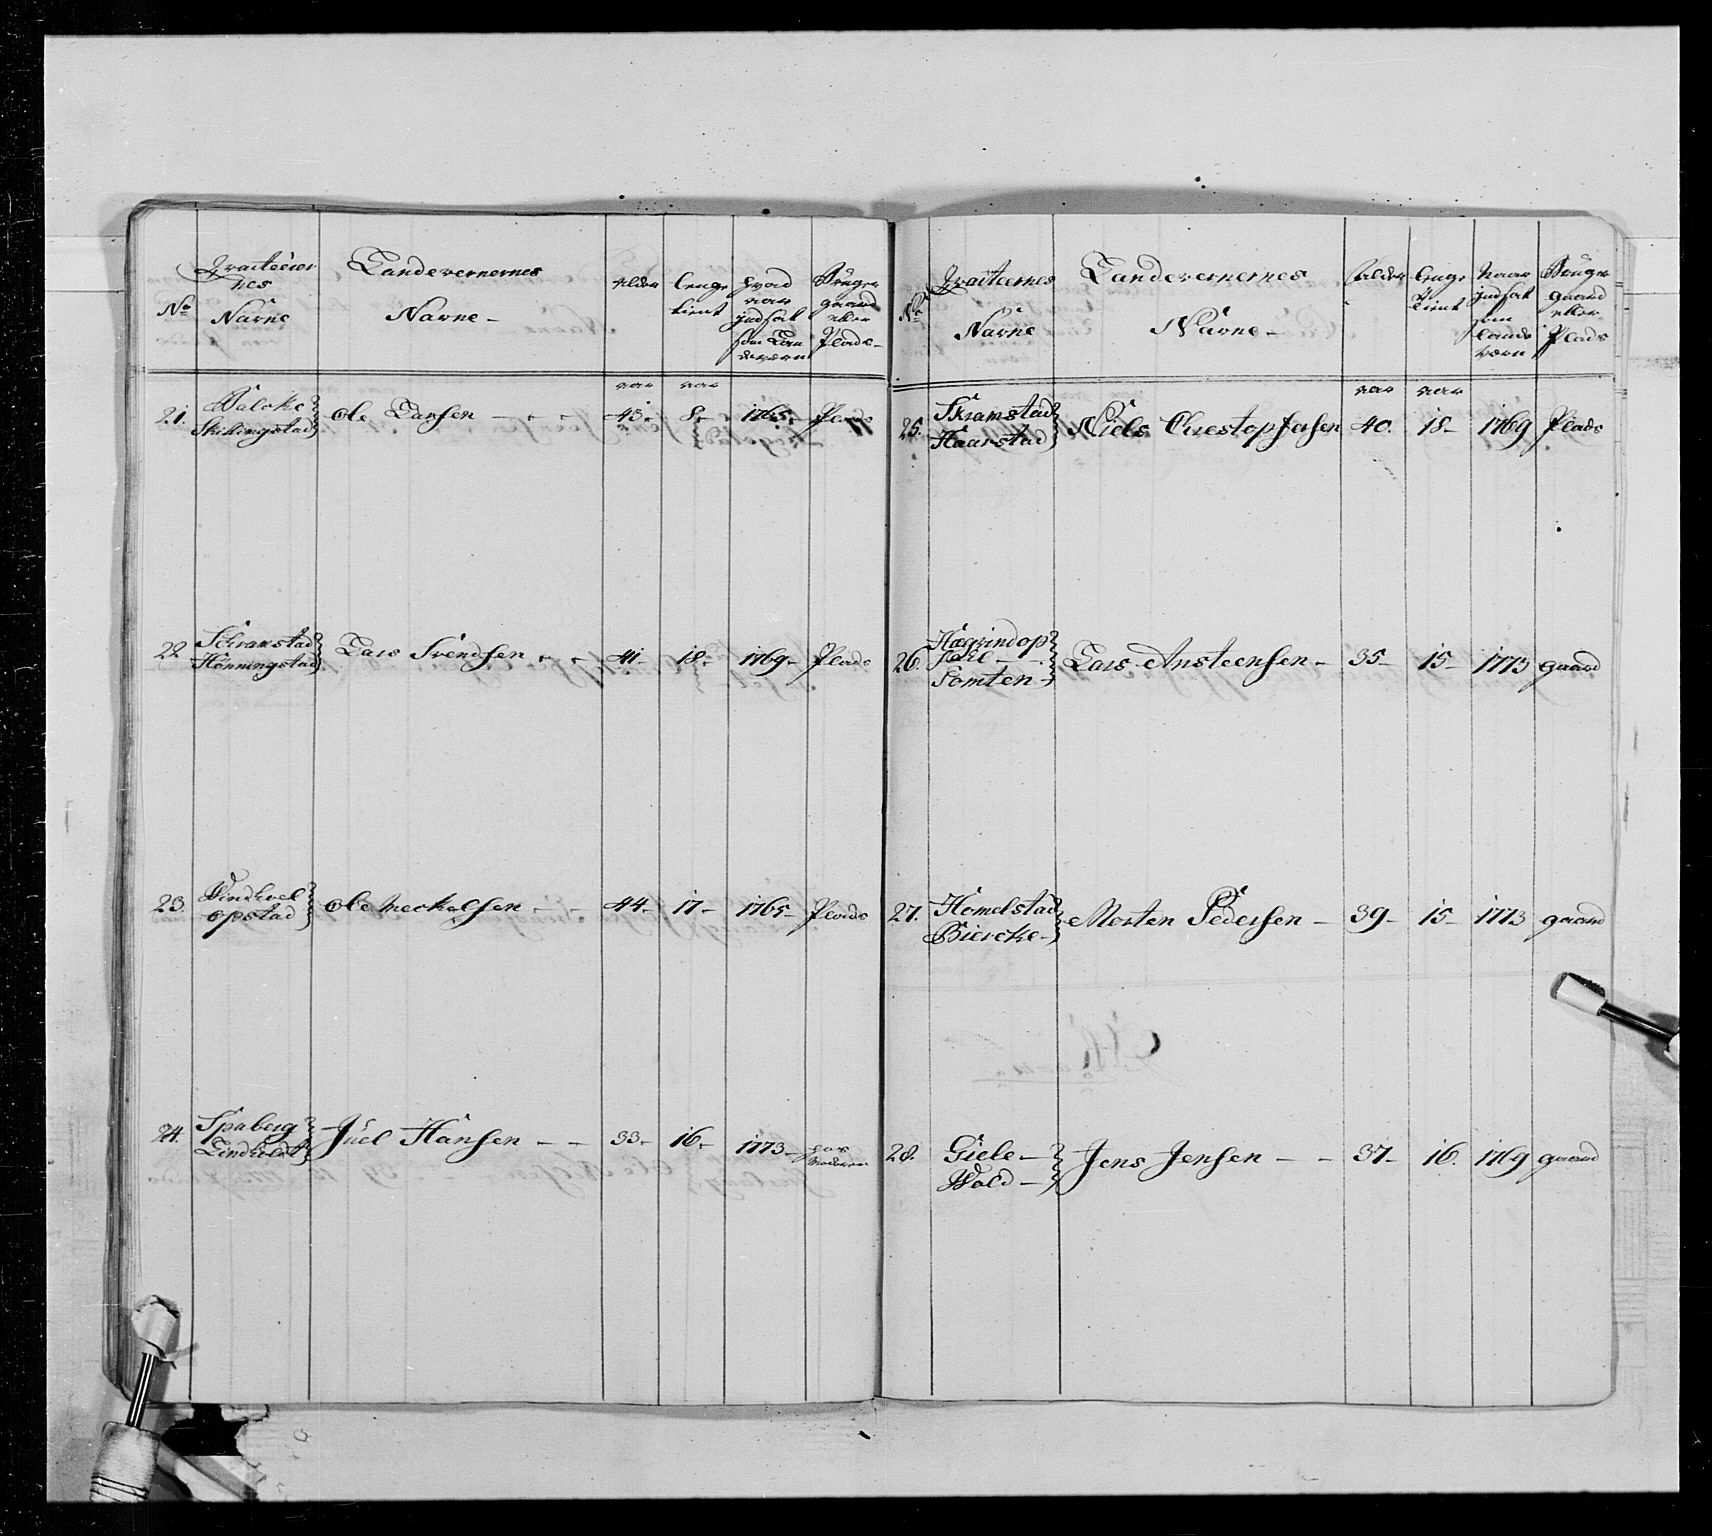 No
Qvarteerer
nes
Navne
Landevernernes
Navne -
alder
lenge
tient
hvad
aar
indsat
som Lan
deværn
Bruger
gaard
eller
Plads -
aar aar
21. Balcke
Skillingstad
Ole Larsen - - - 43. 8. 1765. Plads
22 Skramstad
Hönningstad
Lars Svendsen - - 41. 18. 1769. Plads
23. Windkvel
opstad
Ole Meckelsen - - 44. 17 - 1765 - Plads
24. Spaberg
Lindholdt
Juel Hansen - - 33. 16. 1773.
No
Qvarteernes
Navne
Landevernernes
Navne -
alder
lenge
tient
Naar
indsat
som
lands
værn
Bruger
gaard
eller
Plads
aar aar
25. Skramstad
Haarstad
Niels Chrestopfersen 40. 18 - 1769 Plads
26. Hagrindop
Somten -
Lars Ansteensen - 35 - 15 - 1773 gaard
27. Homelstad
Biercke -
Morten Pedersen - 39 - 15 - 1773 gaard
28. Giele -
Wold -
Jens Jensen - - 37 - 16. 1769 gaard